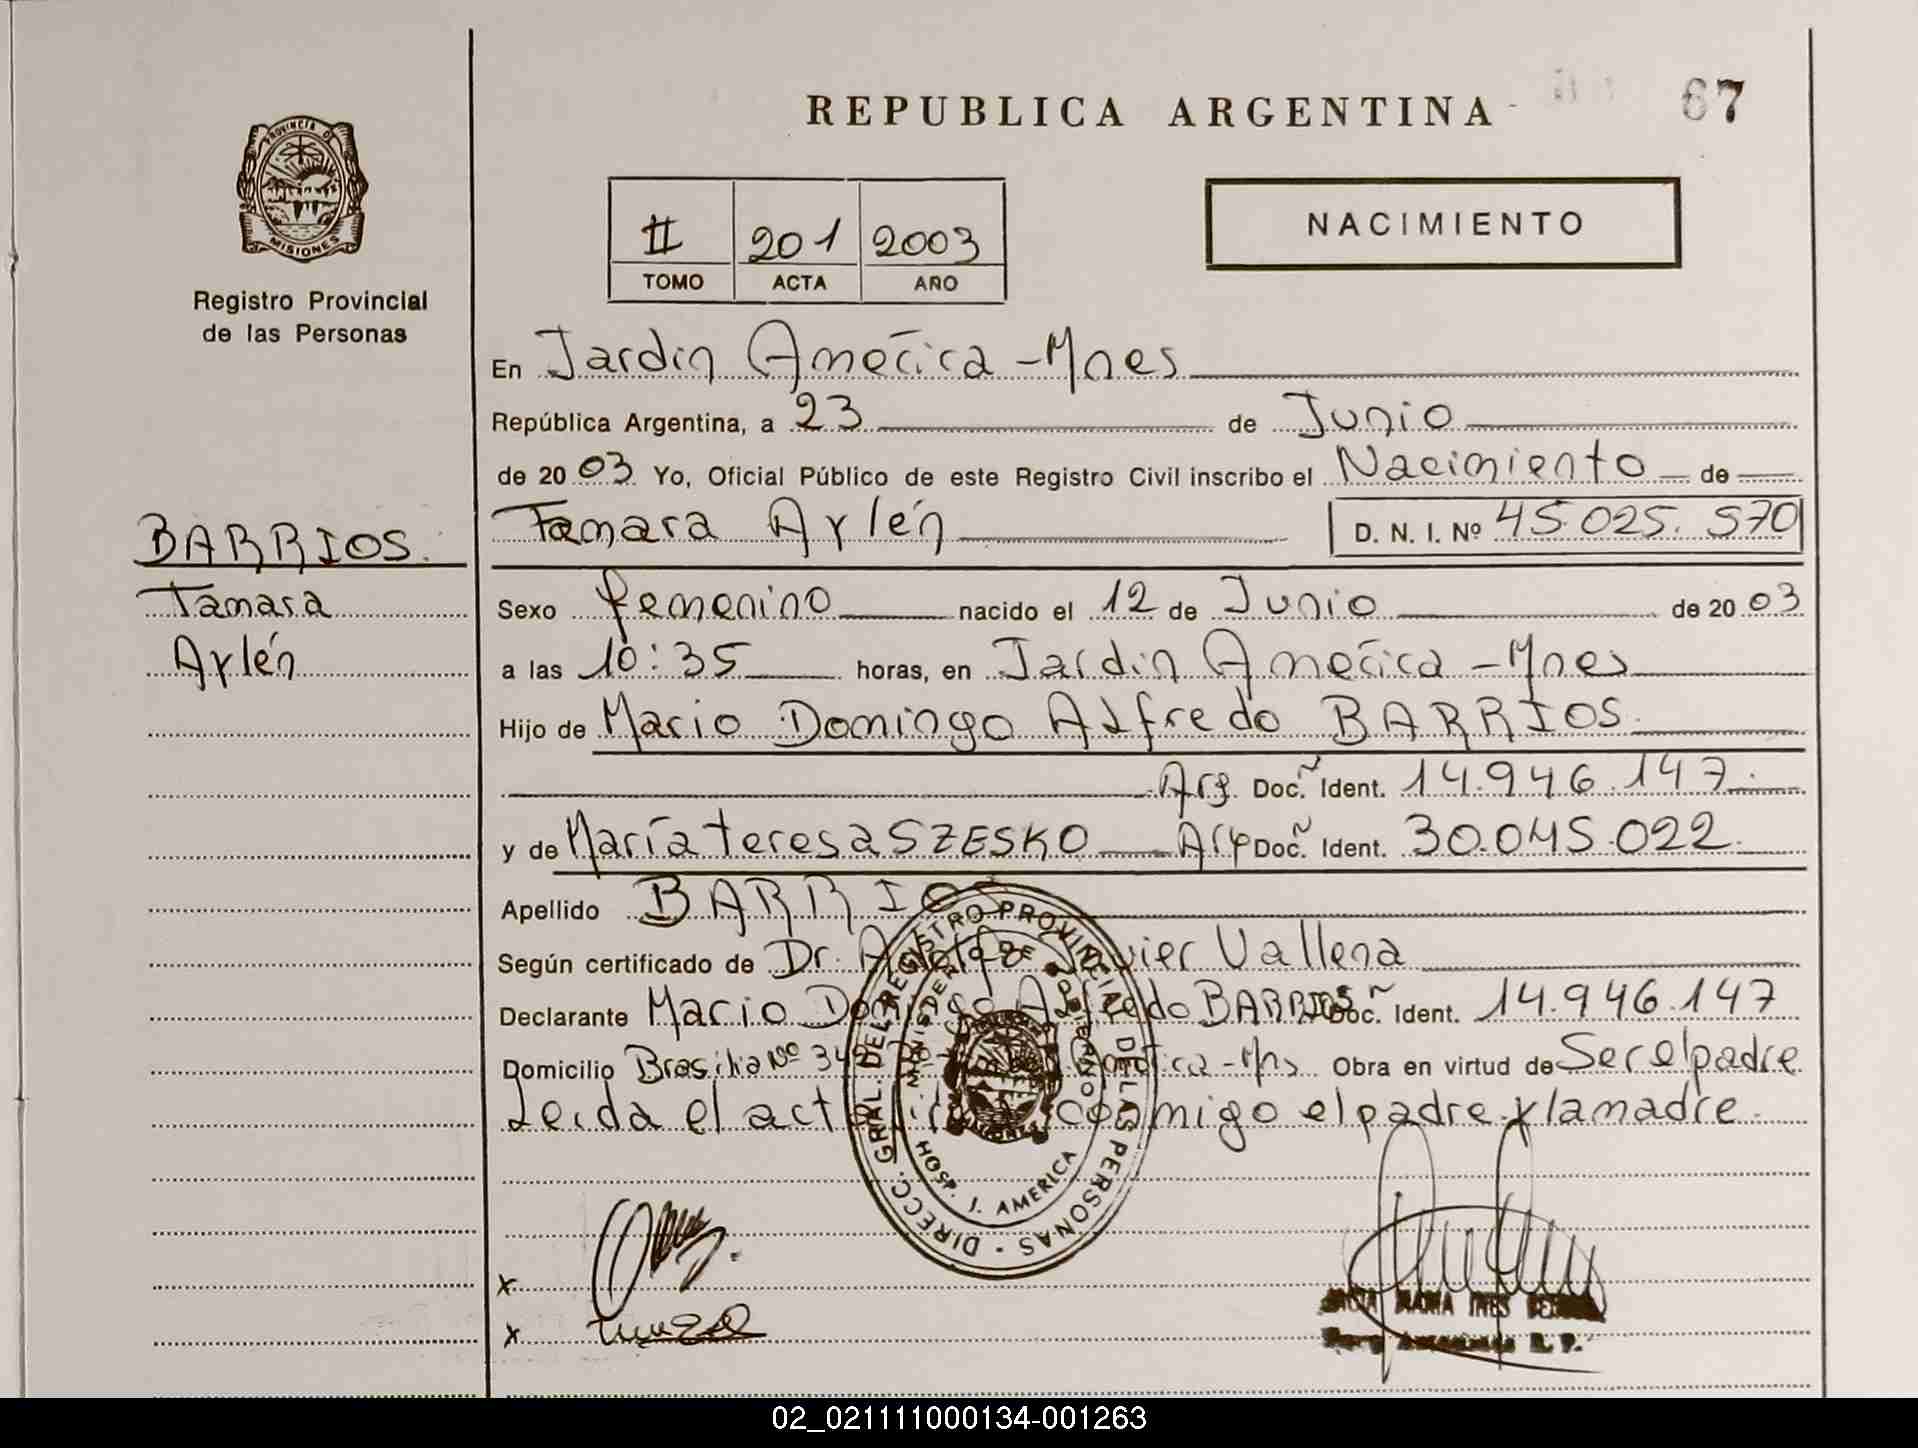 REPUBLICA ARGENTINA
67
PROVINCIA DE
MISIONES
Registro Provincial
de las Personas
II 201 2003
TOMO ACTA AÑO
NACIMIENTO
En Jardin América - Mnes
República Argentina, a 23 de Junio
de 2003 Yo, Oficial Público de este Registro Civil inscribo el Nacimiento de
BARRIOS.
Tamara
Aylén
Tamara Aylén D. N. I. Nº 45.025.570
Sexo femenino nacido el 12 de Junio de 2003
a las 10:35 horas, en Jardin América - Mnes
Hijo de Mario Domingo Alfredo BARRIOS.
Arg. Doc. Ident. 14.946.147.
y de María teresa SZESKO Arg Doc. Ident. 30.045.022.
Apellido BARRIOS
Según certificado de Dr. Javier Vallena
Declarante Mario Domingo Alfredo BARRIOS Doc. Ident. 14.946.147
Domicilio Brasilia Nº América - Mns Obra en virtud de Ser el padre
Leida el acta conmigo el padre y la madre.
DIRECC. GRAL. DEL REGISTRO PROVINCIAL DE LAS PERSONAS
MINISTERIO DE GOBIERNO
HOSP. J. AMERICA
MISIONES
x
x
MARIA INES
R. P.
02_021111000134-001263